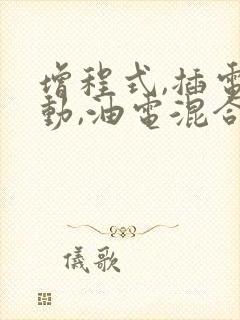 增程式,插電
動,油電混合
儀歌